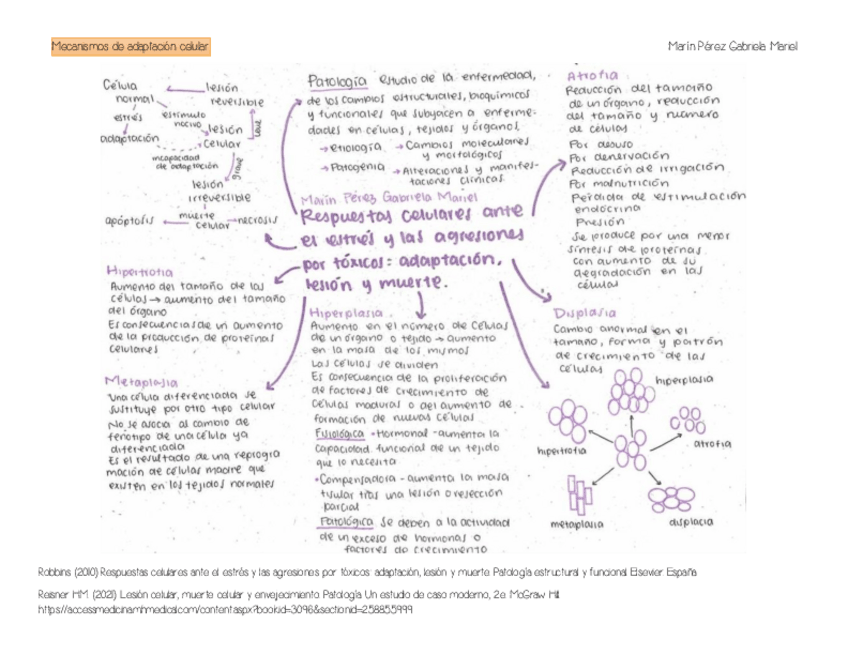 Mecanismos de adaptación celular
Marín Pérez Gabriela Mariel
Célula
normal
lesión
reversible
estrés
estímulo
nocivo
leve
adaptación
lesión
celular
incapacidad
de adaptación
grave
lesión
irreversible
apóptosis
muerte
celular
necrosis
Patología estudio de la enfermedad,
de los cambios estructurales, bioquímicos
y funcionales que subyacen a enferme-
dades en células, tejidos y órganos.
→ etiología → Cambios moleculares
y morfológicos
→ Patogenia → Alteraciones y manifes-
taciones clínicas.
Marín Pérez Gabriela Mariel
Respuestas celulares ante
el estrés y las agresiones
por tóxicos: adaptación,
lesión y muerte.
Atrofia
Reducción del tamaño
de un órgano, reducción
del tamaño y número
de células
Por desuso
Por denervación
Reducción de irrigación
Por malnutrición
Perdida de estimulación
endócrina
Presión
Se produce por una menor
síntesis de proteínas
con aumento de su
degradación en las
células
Hipertrofia
Aumento del tamaño de las
células → aumento del tamaño
del órgano
Es consecuencias de un aumento
de la producción de proteínas
celulares
Metaplasia
Una célula diferenciada se
sustituye por otro tipo celular
No se asocia al cambio de
fenotipo de una célula ya
diferenciada
Es el resultado de una reprogra
mación de células madre que
existen en los tejidos normales
Hiperplasia
Aumento en el número de células
de un órgano o tejido → aumento
en la masa de los mismos
Las células se dividen
Es consecuencia de la proliferación
de factores de crecimiento de
células maduras o del aumento de
formación de nuevas células
Fisiológica •Hormonal - aumenta la
capacidad funcional de un tejido
que lo necesita
•Compensadora - aumenta la masa
tisular tras una lesión o resección
parcial
Patológica Se deben a la actividad
de un exceso de hormonas o
factores de crecimiento
Displasia
Cambio anormal en el
tamaño, forma y patrón
de crecimiento de las
células
hiperplasia
hipertrofia
atrofia
metaplasia
displacia
Robbins (2010) Respuestas celulares ante el estrés y las agresiones por tóxicos: adaptación, lesión y muerte. Patología estructural y funcional. Elsevier. España
Reisner H.M. (2021). Lesión celular, muerte celular y envejecimiento. Patología. Un estudio de caso moderno, 2e. McGraw Hill.
https://accessmedicina.mhmedical.com/content.aspx?bookid=3096&sectionid=258855999